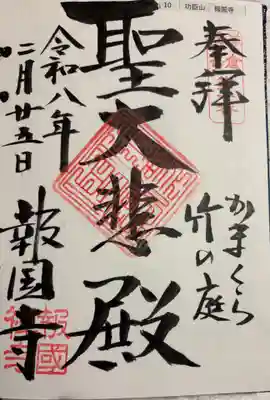 10 功臣山 報国寺
奉拝
かまくら
竹の庭
聖大悲殿
令和八年
二月廿五日
報国寺
報國